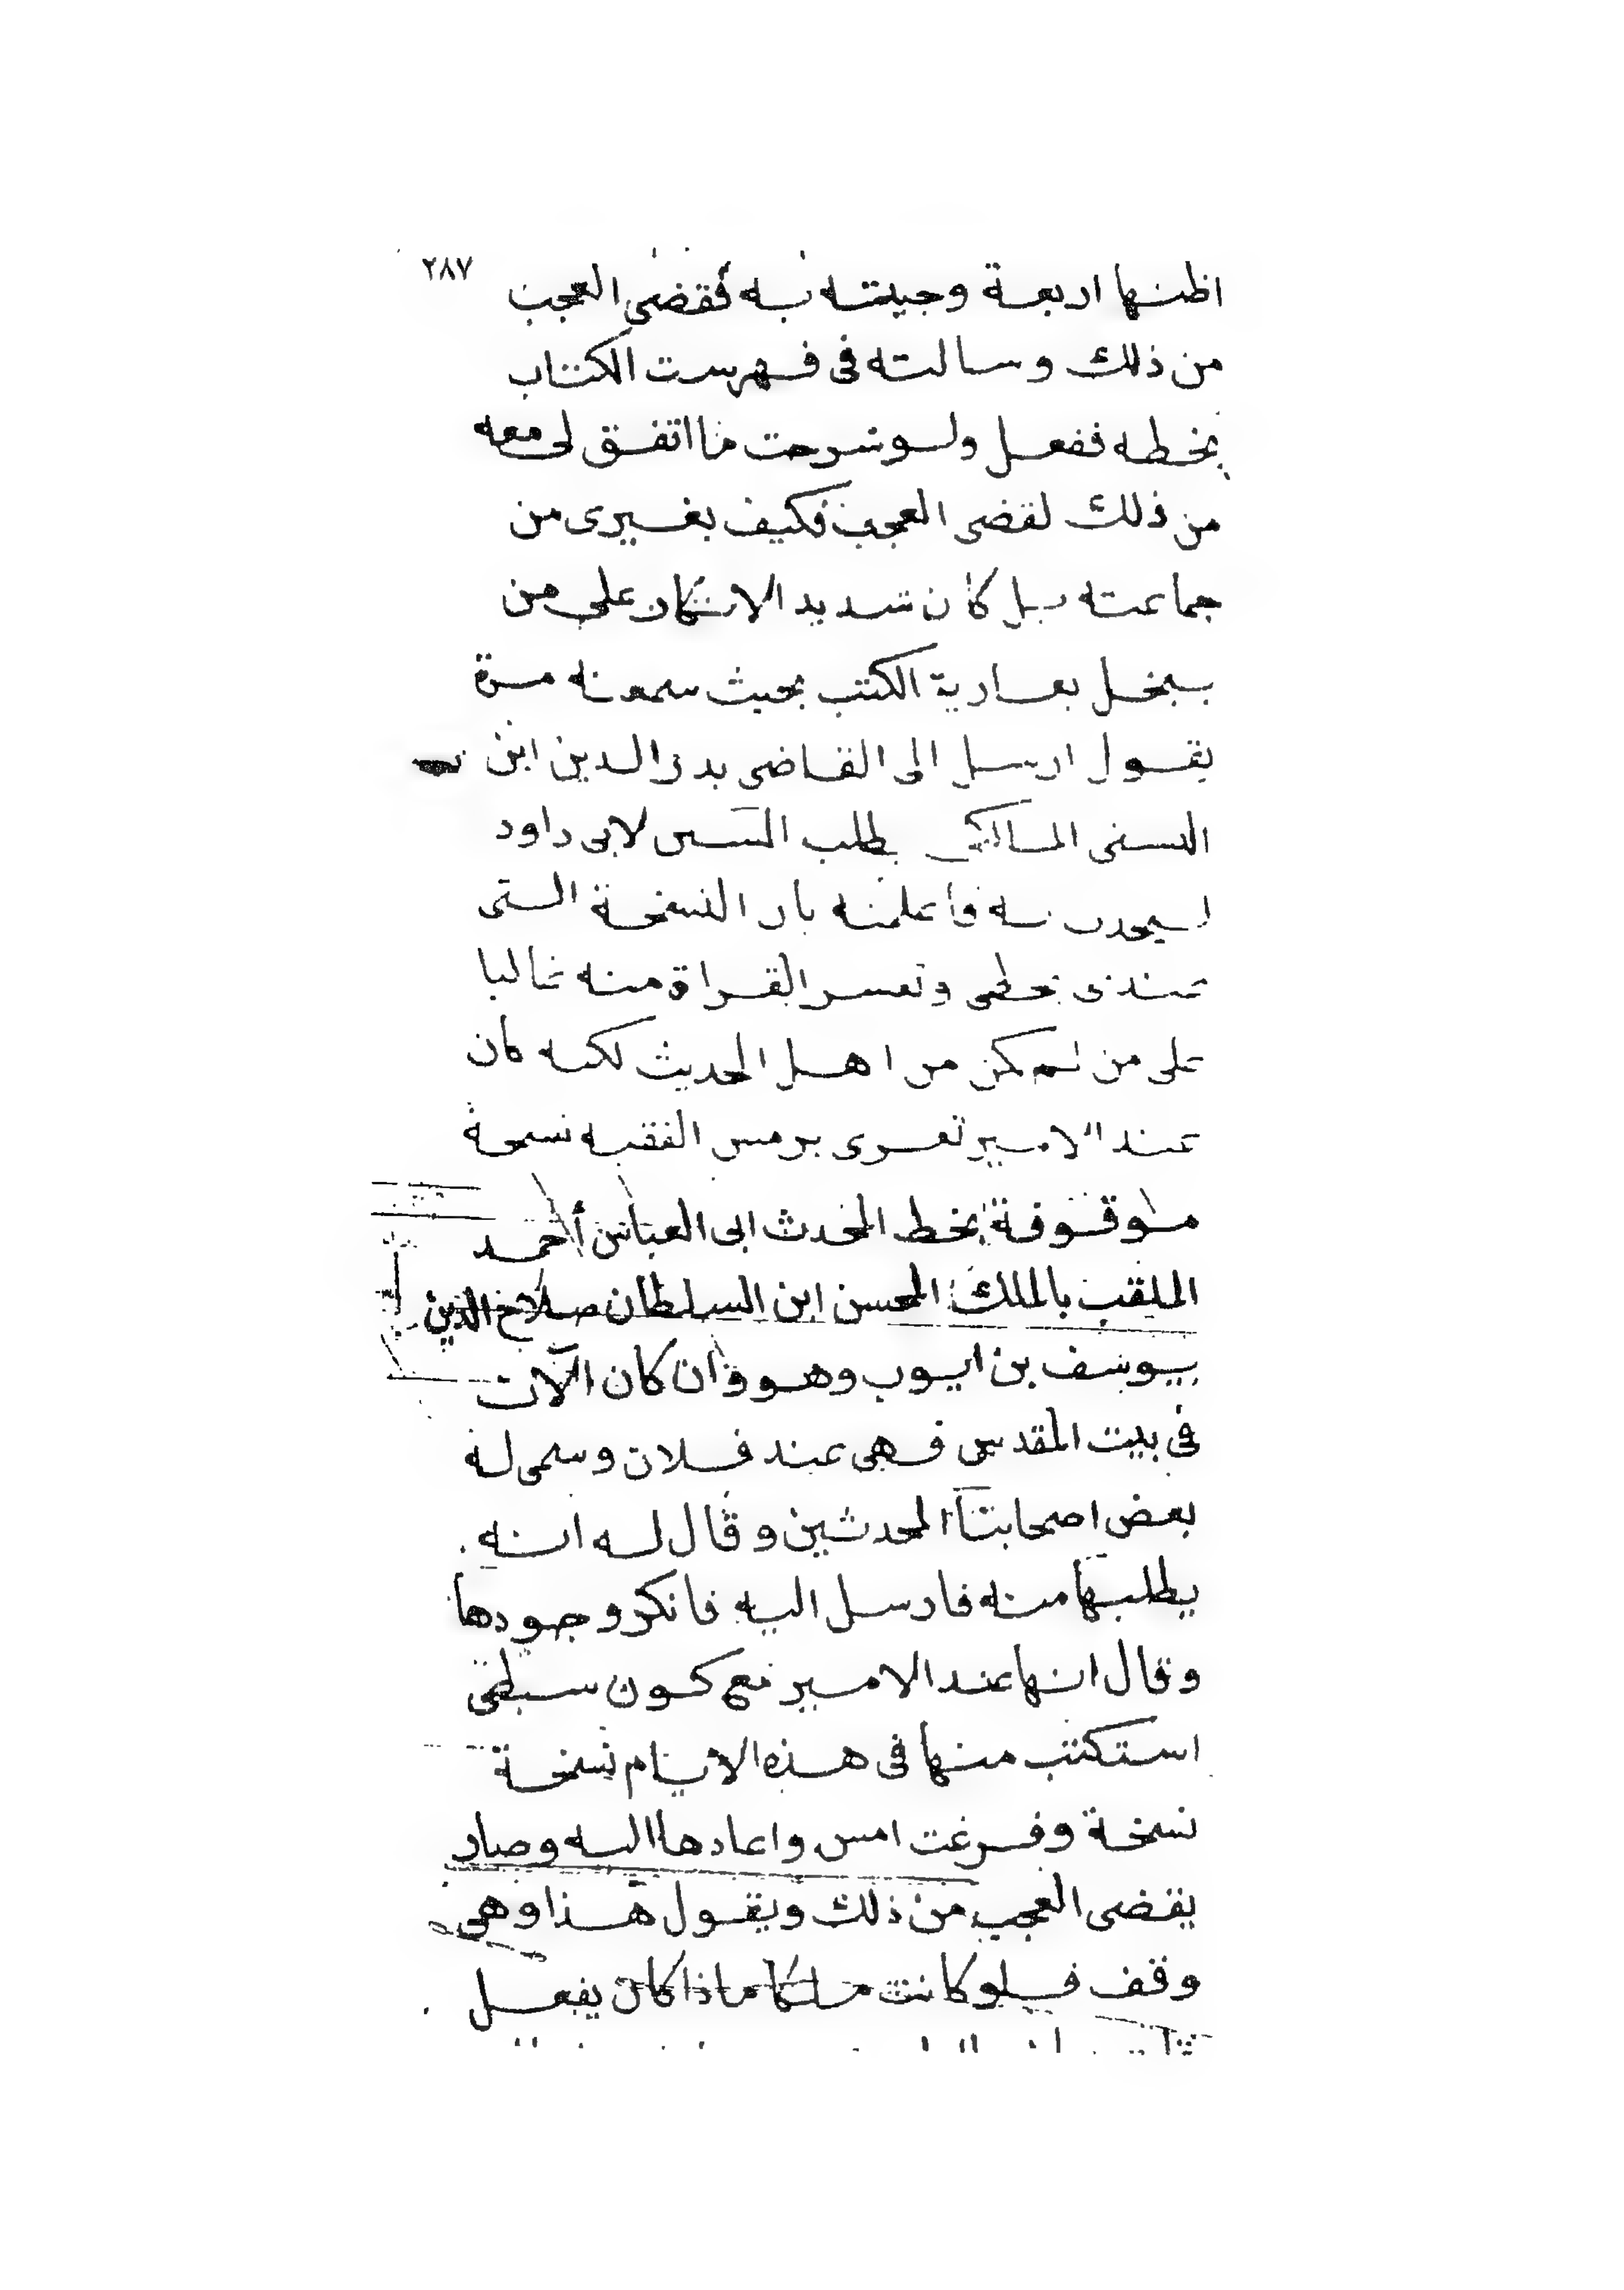 ٢٨٧
اظنها اربعة وجيئته به فقضى العجب
من ذلك وسالته فى فهرست الكتاب
بخطه ففعل ولو شرحت ما اتفق لى معه
من ذلك لقضى العجب فكيف بغيرى من
جماعته بل كان شديد الانكار على من
يبخل بعارية الكتب بحيث سمعته مرة
يقول ارسل الى القاضى بدر الدين ابن
التنسى المالكى يطلب السنن لابى داود
ليحدث به فاعلمته بان النسخة التى
عندى بخطى وتعسر القراة منه غالبا
على من لم يكن من اهل الحديث لكنه كان
عند الامير تغرى برمش الفقيه نسخة
موقوفة بخط المحدث ابى العباس أحمد
الملقب بالملك المحسن ابن السلطان صلاح الدين
يوسف بن ايوب وهو وان كان الآن
فى بيت المقدس فهى عند فلان وسمى له
بعض اصحابنا المحدثين وقال له انه
يطلبها منه فارسل اليه فانكر وجودها
وقال انها عند الامير مع كون سبطى
استكتب منها فى هذه الايام نسخة
نسخة وفرغت امس واعادها اليه وصار
يقضى العجب من ذلك ويقول هذا وهى
وقف فلو كانت ملكا ماذا كان يفعل